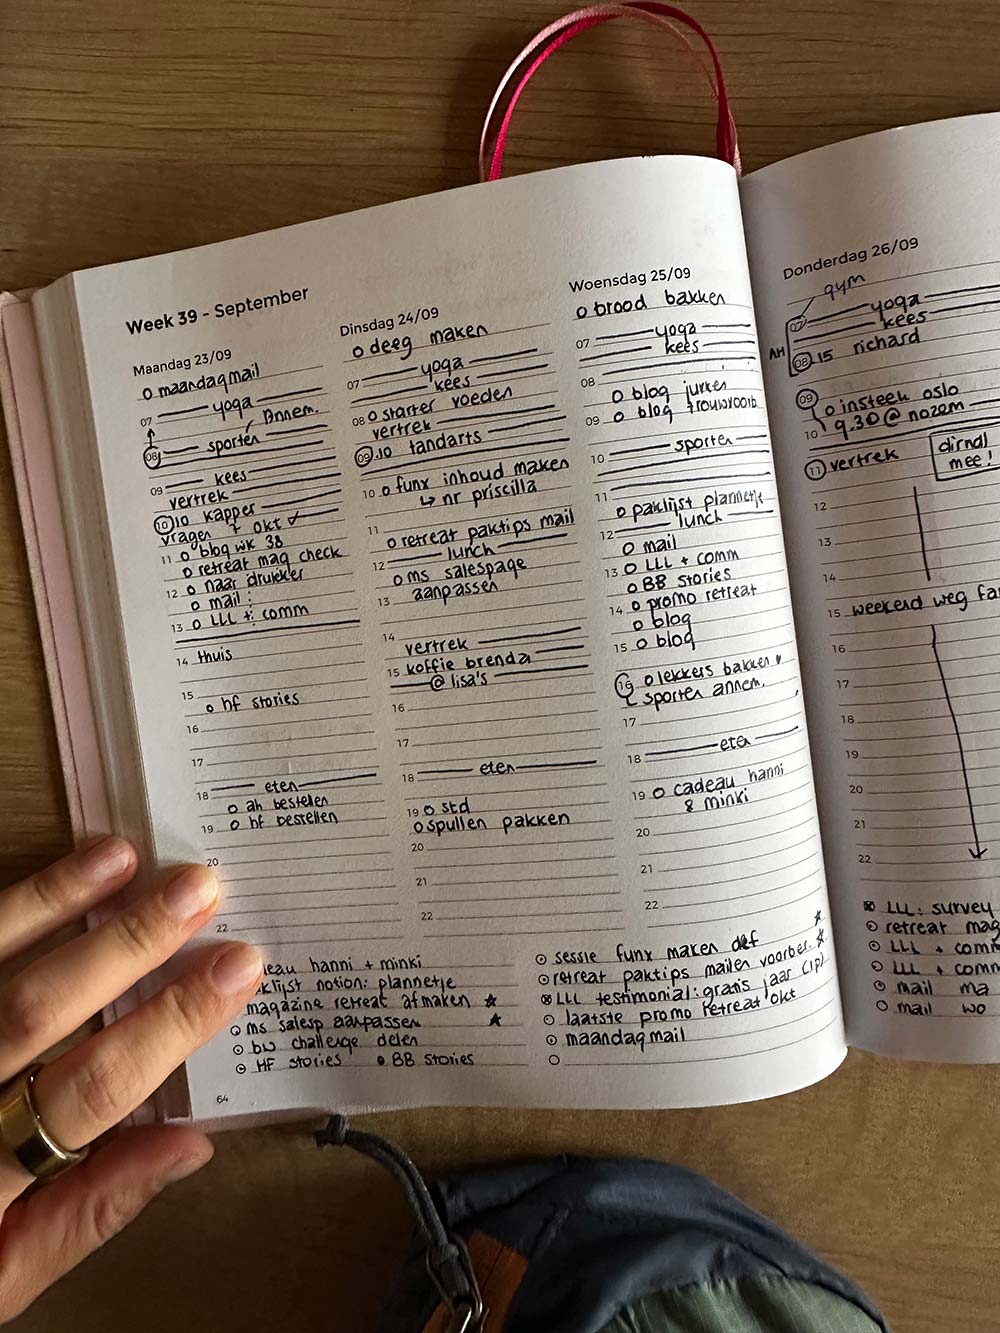 Week 39 - September
Maandag 23/09
o maandagmail
07 yoga
Annem.
08 sporten
09 kees
vertrek
10 10 kapper
vragen + okt ✓
11 o blog wk 38
o retreat mag check
12 o naar drukker
o mail :
13 o LLL + comm
14 thuis
15
o hf stories
16
17
18 eten
o ah bestellen
19 o hf bestellen
20
22
Dinsdag 24/09
o deeg maken
07 yoga
kees
08 o starter voeden
vertrek
09.10 tandarts
10 o funx inhoud maken
↳ nr priscilla
11
o retreat paktips mail
12 lunch
o ms salespage
13 aanpassen
14
vertrek
15 koffie brenda
@ lisa's
16
17
18 eten
19 o std
o spullen pakken
20
21
22
Woensdag 25/09
o brood bakken
07 yoga
kees
08
o blog jurken
09 o blog
10 sporten
11
o paklijst plannetje
12 lunch
o mail
13 o LLL + comm
o BB stories
14 o promo retreat
o blog
15 o blog
16 o lekkers bakken
sporten annem.
17
18 eten
19 o cadeau hanni
& minki
20
21
22
Donderdag 26/09
gym
07 yoga
kees
AH
08 15 richard
09
o insteek oslo
10 9.30 @ nozem
11 vertrek
dirndl
mee!
12
13
14
15 weekend weg
16
17
18
19
20
21
22
hanni + minki
notion: plannetje
magazine retreat afmaken ★
o ms salesp aanpassen ★
o bw challenge delen
o HF stories • BB stories
o sessie funx maken def ★
o retreat paktips mailen voorber. ★
LLL testimonial: gratis jaar (1p)
o laatste promo retreat okt
o maandagmail
o
LLL: survey
o retreat mag
o LLL +
o LLL +
o mail ma
o mail wo
64